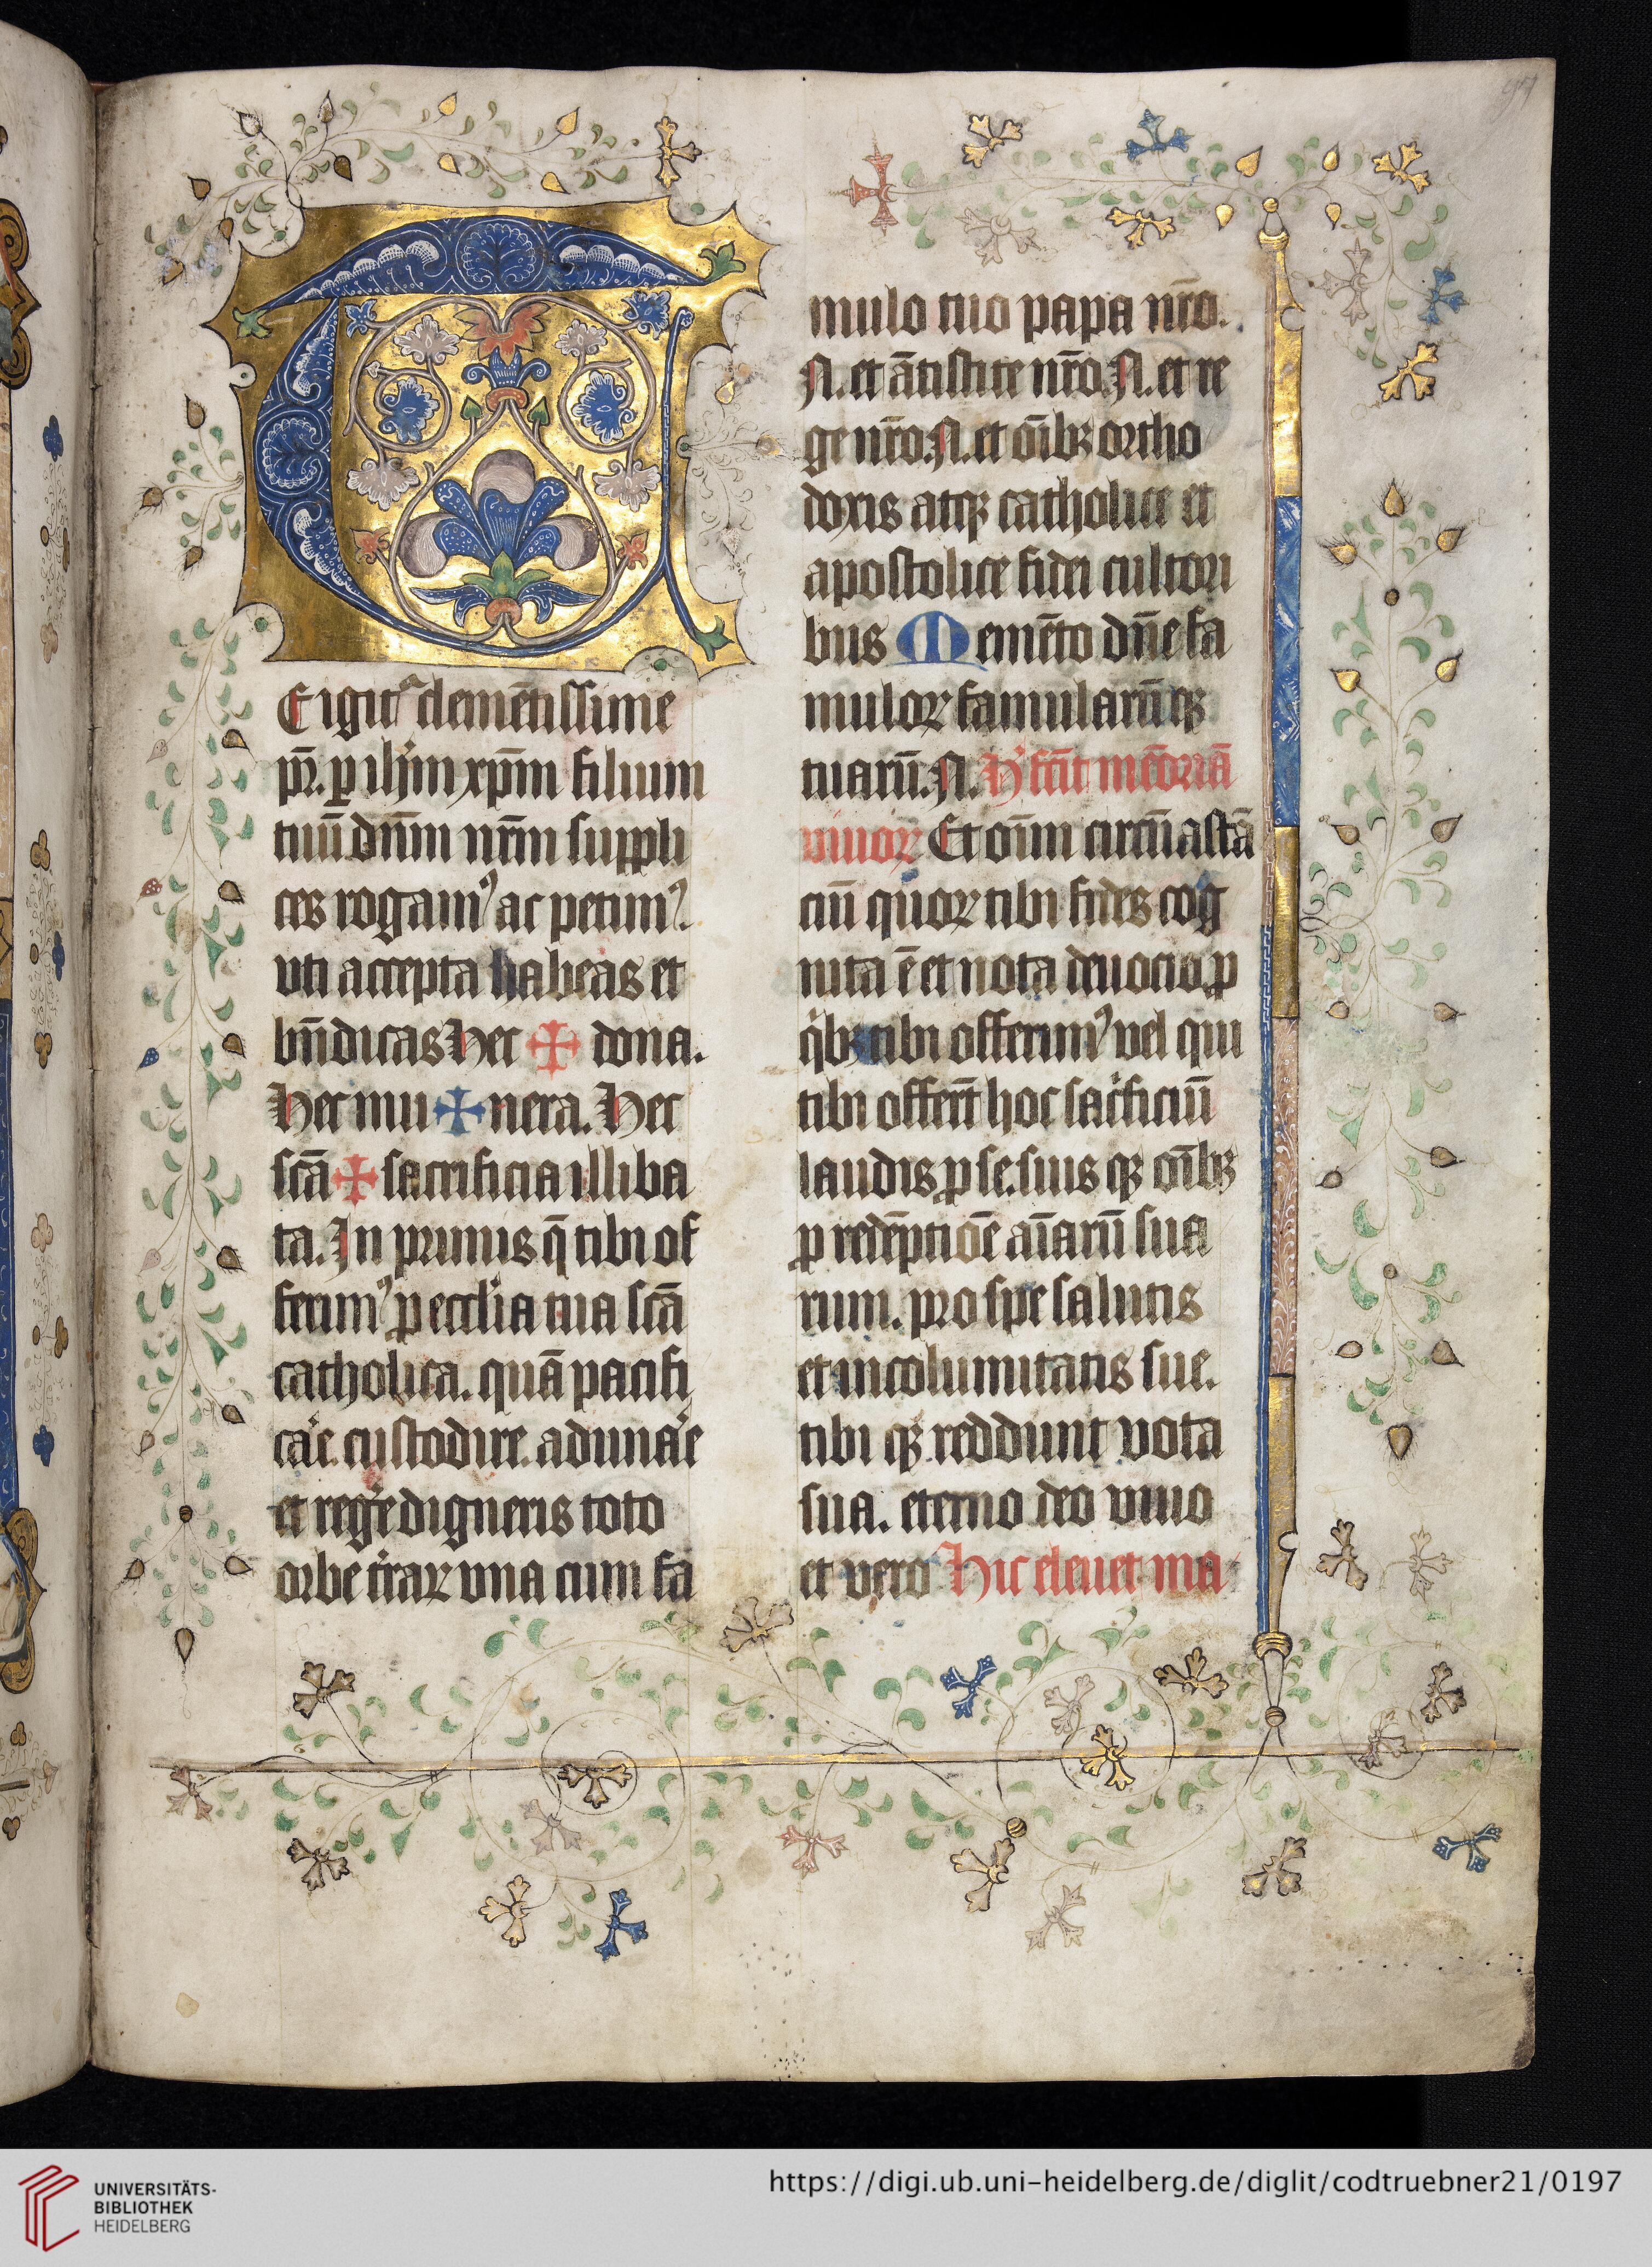 97
T
E igit᷑ clemētissime
pr̄. ꝑ ihm̄ xp̄m filium
tuū dn̄m nr̄m suppli
ces rogamꝰ ac petimꝰ.
vti accepta habeas et
bn̄dicas Hec ✠ dona.
Hec mu ✠ nera. Hec
sc̄a ✠ sacrificia illiba
ta. In primis q̄ tibi of
ferimꝰ ꝓ eccl'ia tua sc̄a
catholica. quā pacifi
ca'e. custodire. aduna'e
et reg'e digneris toto
orbe t'raꝝ vna cum fa
mulo tuo papa nr̄o.
N. et ātistite nr̄o. N. et re
ge nr̄o. N. et oībꝫ ortho
doxis atqꝫ catholice et
apostolice fidei cultori
bus Memēto dn̄e fa
muloꝝ famularūqꝫ
tuarū. N. H' fc̄it mēoriā
viuoꝝ Et oīm circūastā
ciū quoꝝ tibi fides cog
nita ē et nota deuocio. ꝓ
qⁱbꝫ tibi offerimꝰ vel qui
tibi offerūt hoc sac'ficiū
laudis ꝓ se. suis qꝫ oībꝫ
ꝓ redēptiōe aīarū sua
rum. pro spe salutis
et incolumitatis sue.
tibi qꝫ reddunt vota
sua. eterno deo viuo
et vero Hic eleuet ma
UNIVERSITÄTS-
BIBLIOTHEK
HEIDELBERG
https://digi.ub.uni-heidelberg.de/diglit/codtruebner21/0197